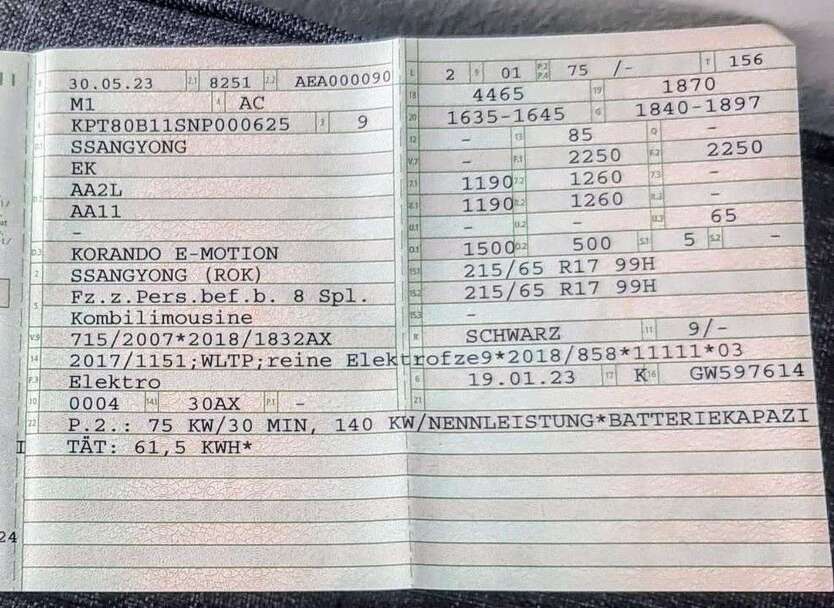 30.05.23 2.1 8251 2.2 AEA000090
M1 4 AC
KPT80B11SNP000625 3 9
SSANGYONG
EK
AA2L
AA11
-
KORANDO E-MOTION
SSANGYONG (ROK)
Fz.z.Pers.bef.b. 8 Spl.
Kombilimousine
V.9 715/2007*2018/1832AX
14 2017/1151;WLTP;reine Elektrofze9*2018/858*11111*03
P.3 Elektro
10 0004 14.1 30AX P.1 -
22 P.2.: 75 KW/30 MIN, 140 KW/NENNLEISTUNG*BATTERIEKAPAZI
TÄT: 61,5 KWH*
L 2 9 01 P.2 P.4 75 /- T 156
18 4465 19 1870
20 1635-1645 G 1840-1897
12 - 13 85 Q -
V.7 - F.1 2250 F.2 2250
7.1 1190 7.2 1260 7.3 -
8.1 1190 8.2 1260 8.3 -
U.1 - U.2 - U.3 65
O.1 1500 O.2 500 S.1 5 S.2 -
15.1 215/65 R17 99H
15.2 215/65 R17 99H
15.3 -
R SCHWARZ 11 9/-
6 19.01.23 17 K 16 GW597614
21
24